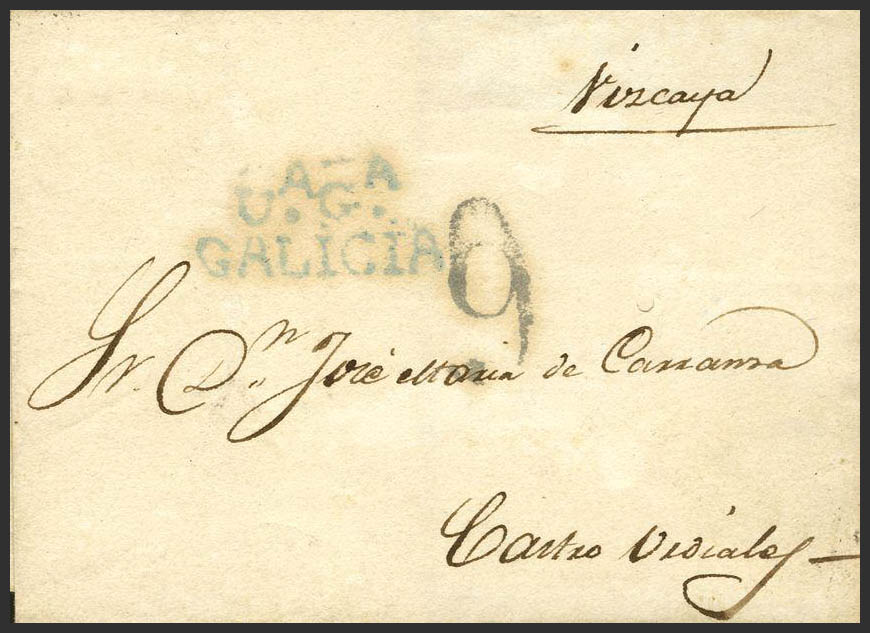 Vizcaya
U.ᴬG.ᴬ
GALICIA
9
Sr. Dⁿ José Maria de Carranza
Castro Urdiales